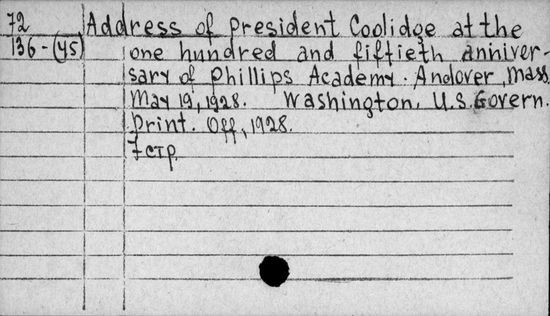 72 Address of president Coolidge at the
136-(45) one hundred and fiftieth anniver-
sary of Phillips Academy. Andover, Mass.
May 19, 1928. Washington, U.S. Govern.
print. Off, 1928.
7 стр.